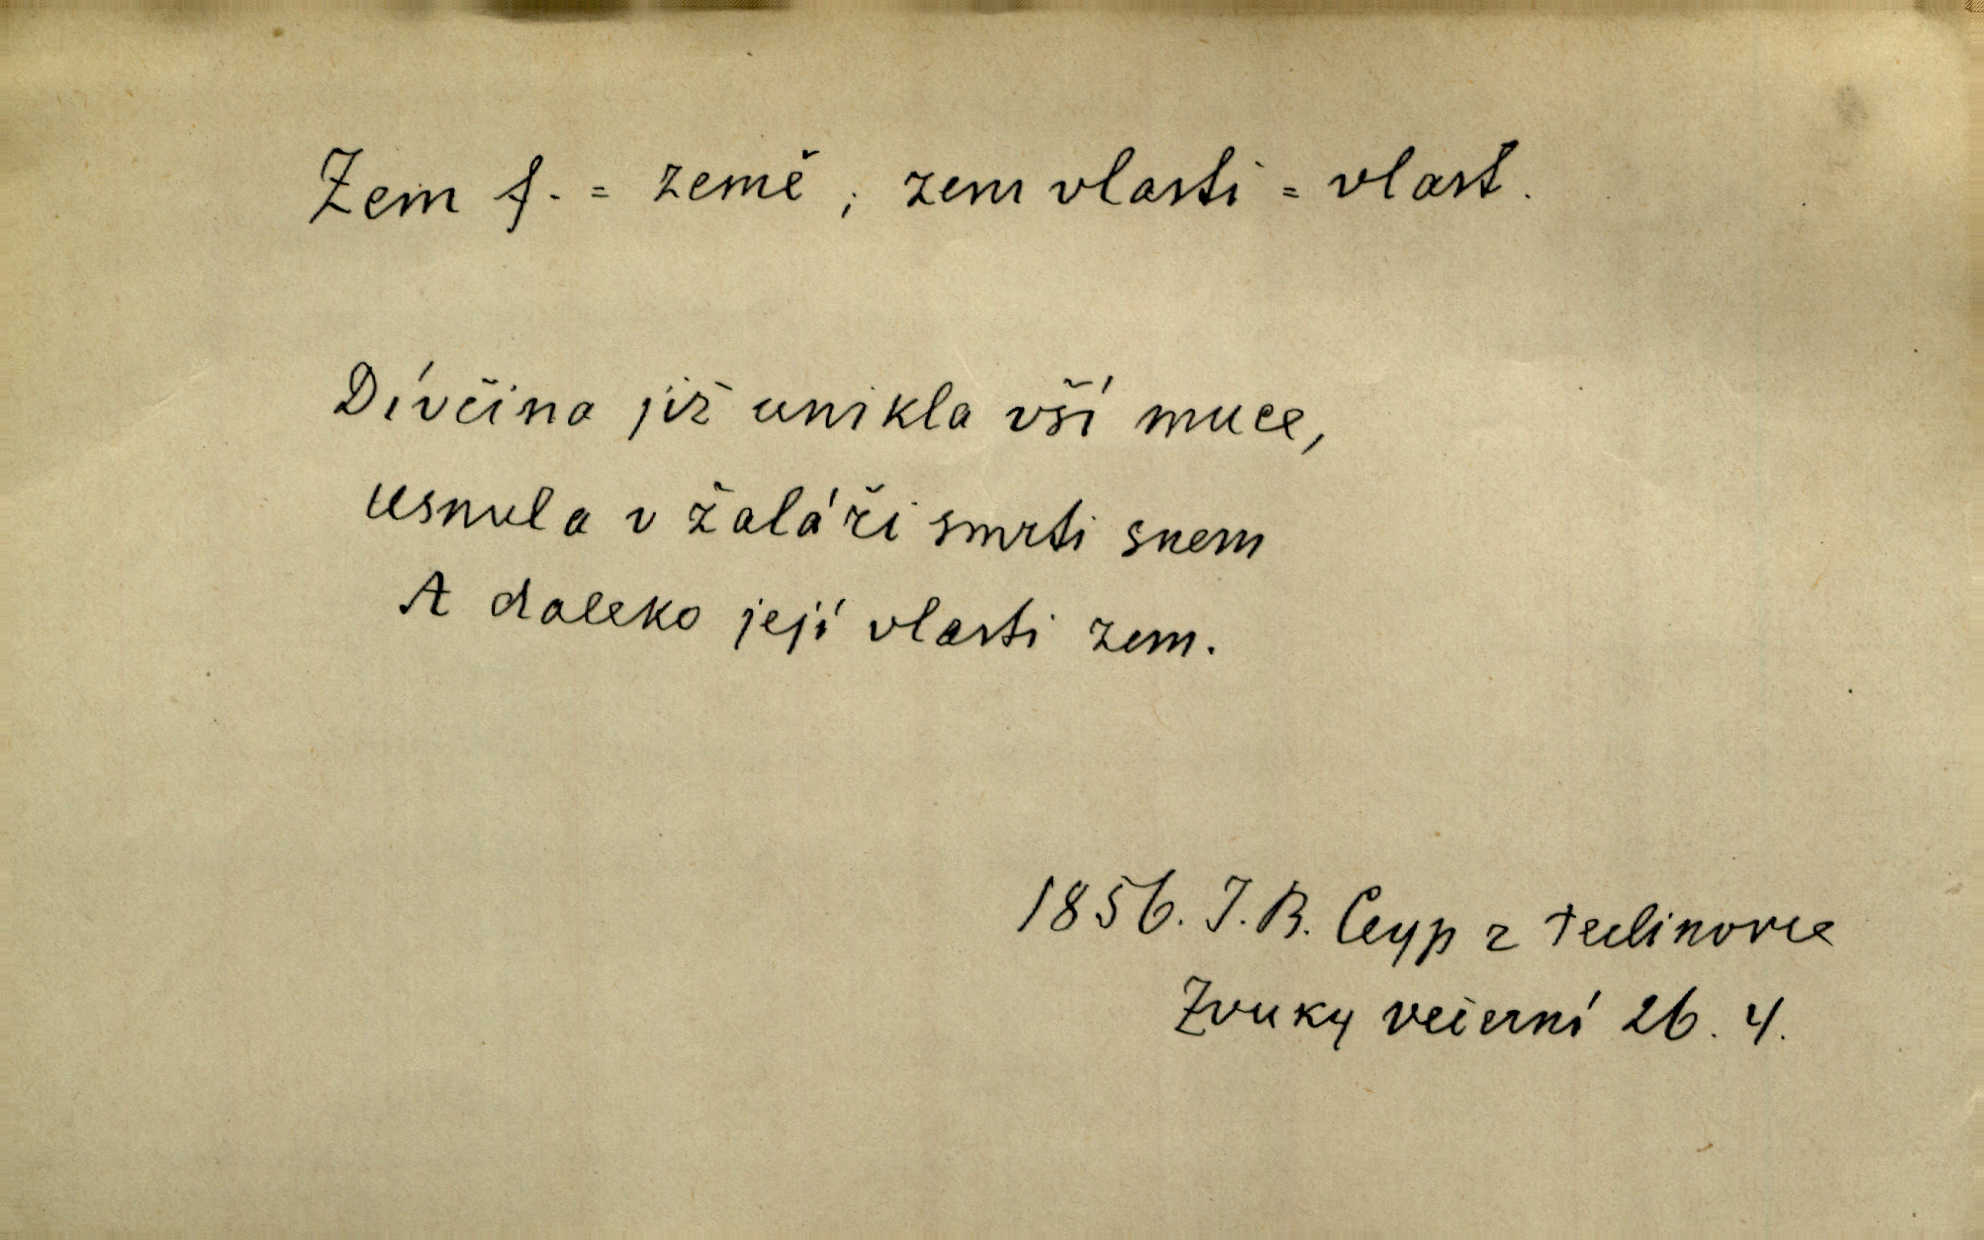 Zem f. = země; zem vlasti = vlast.
Dívčina již unikla vší muce,
usnula v žaláři smrti snem
A daleko její vlasti zem.
1856. J. B. Ceyp z
Zvuky večerní 26. 4.